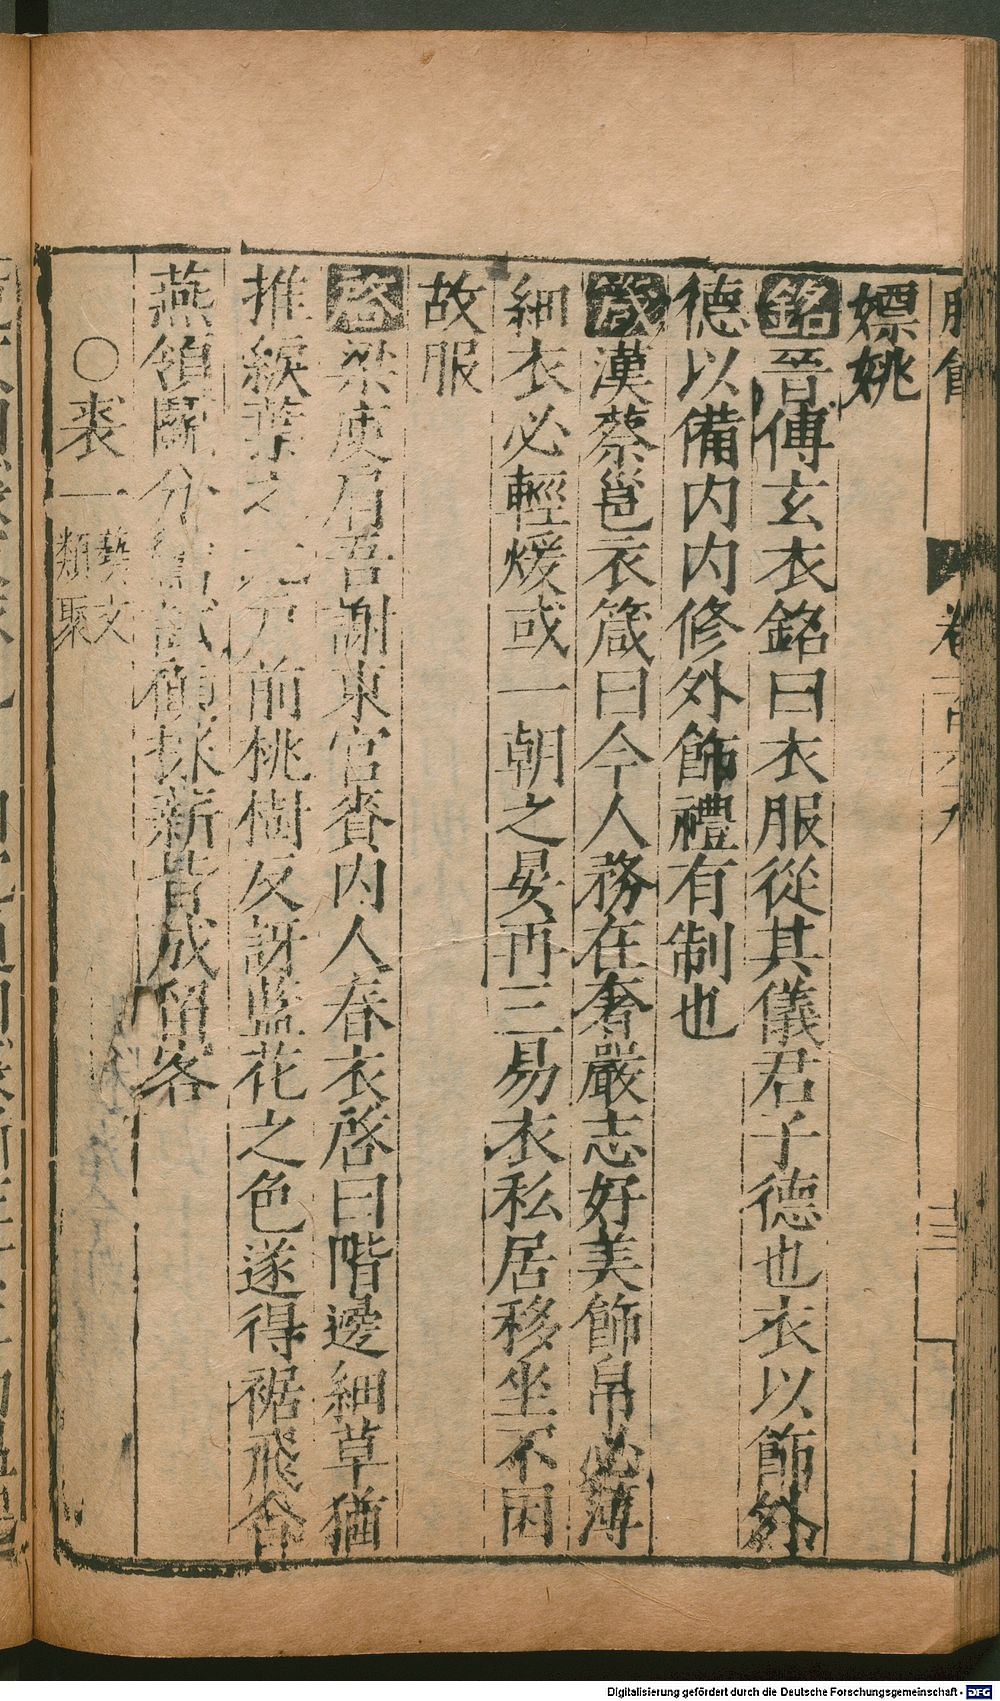 嫖姚
銘晉傅玄衣銘曰衣服從其儀君子德也衣以飾外
德以備内内修外飾禮有制也
箴漢蔡邕衣箴曰今人務在奢嚴志好美飾帛必薄
細衣必輕煖或一朝之晏再三易衣私居移坐不因
故服
啓梁庾肩吾謝東宫賚内人春衣啓曰階邊細草猶
推綟葉之光户前桃樹反訝藍花之色遂得裾飛合
燕領鬬分鸞試顧採薪皆成留客
○裘一藝文類聚
Digitalisierung gefördert durch die Deutsche Forschungsgemeinschaft - DFG